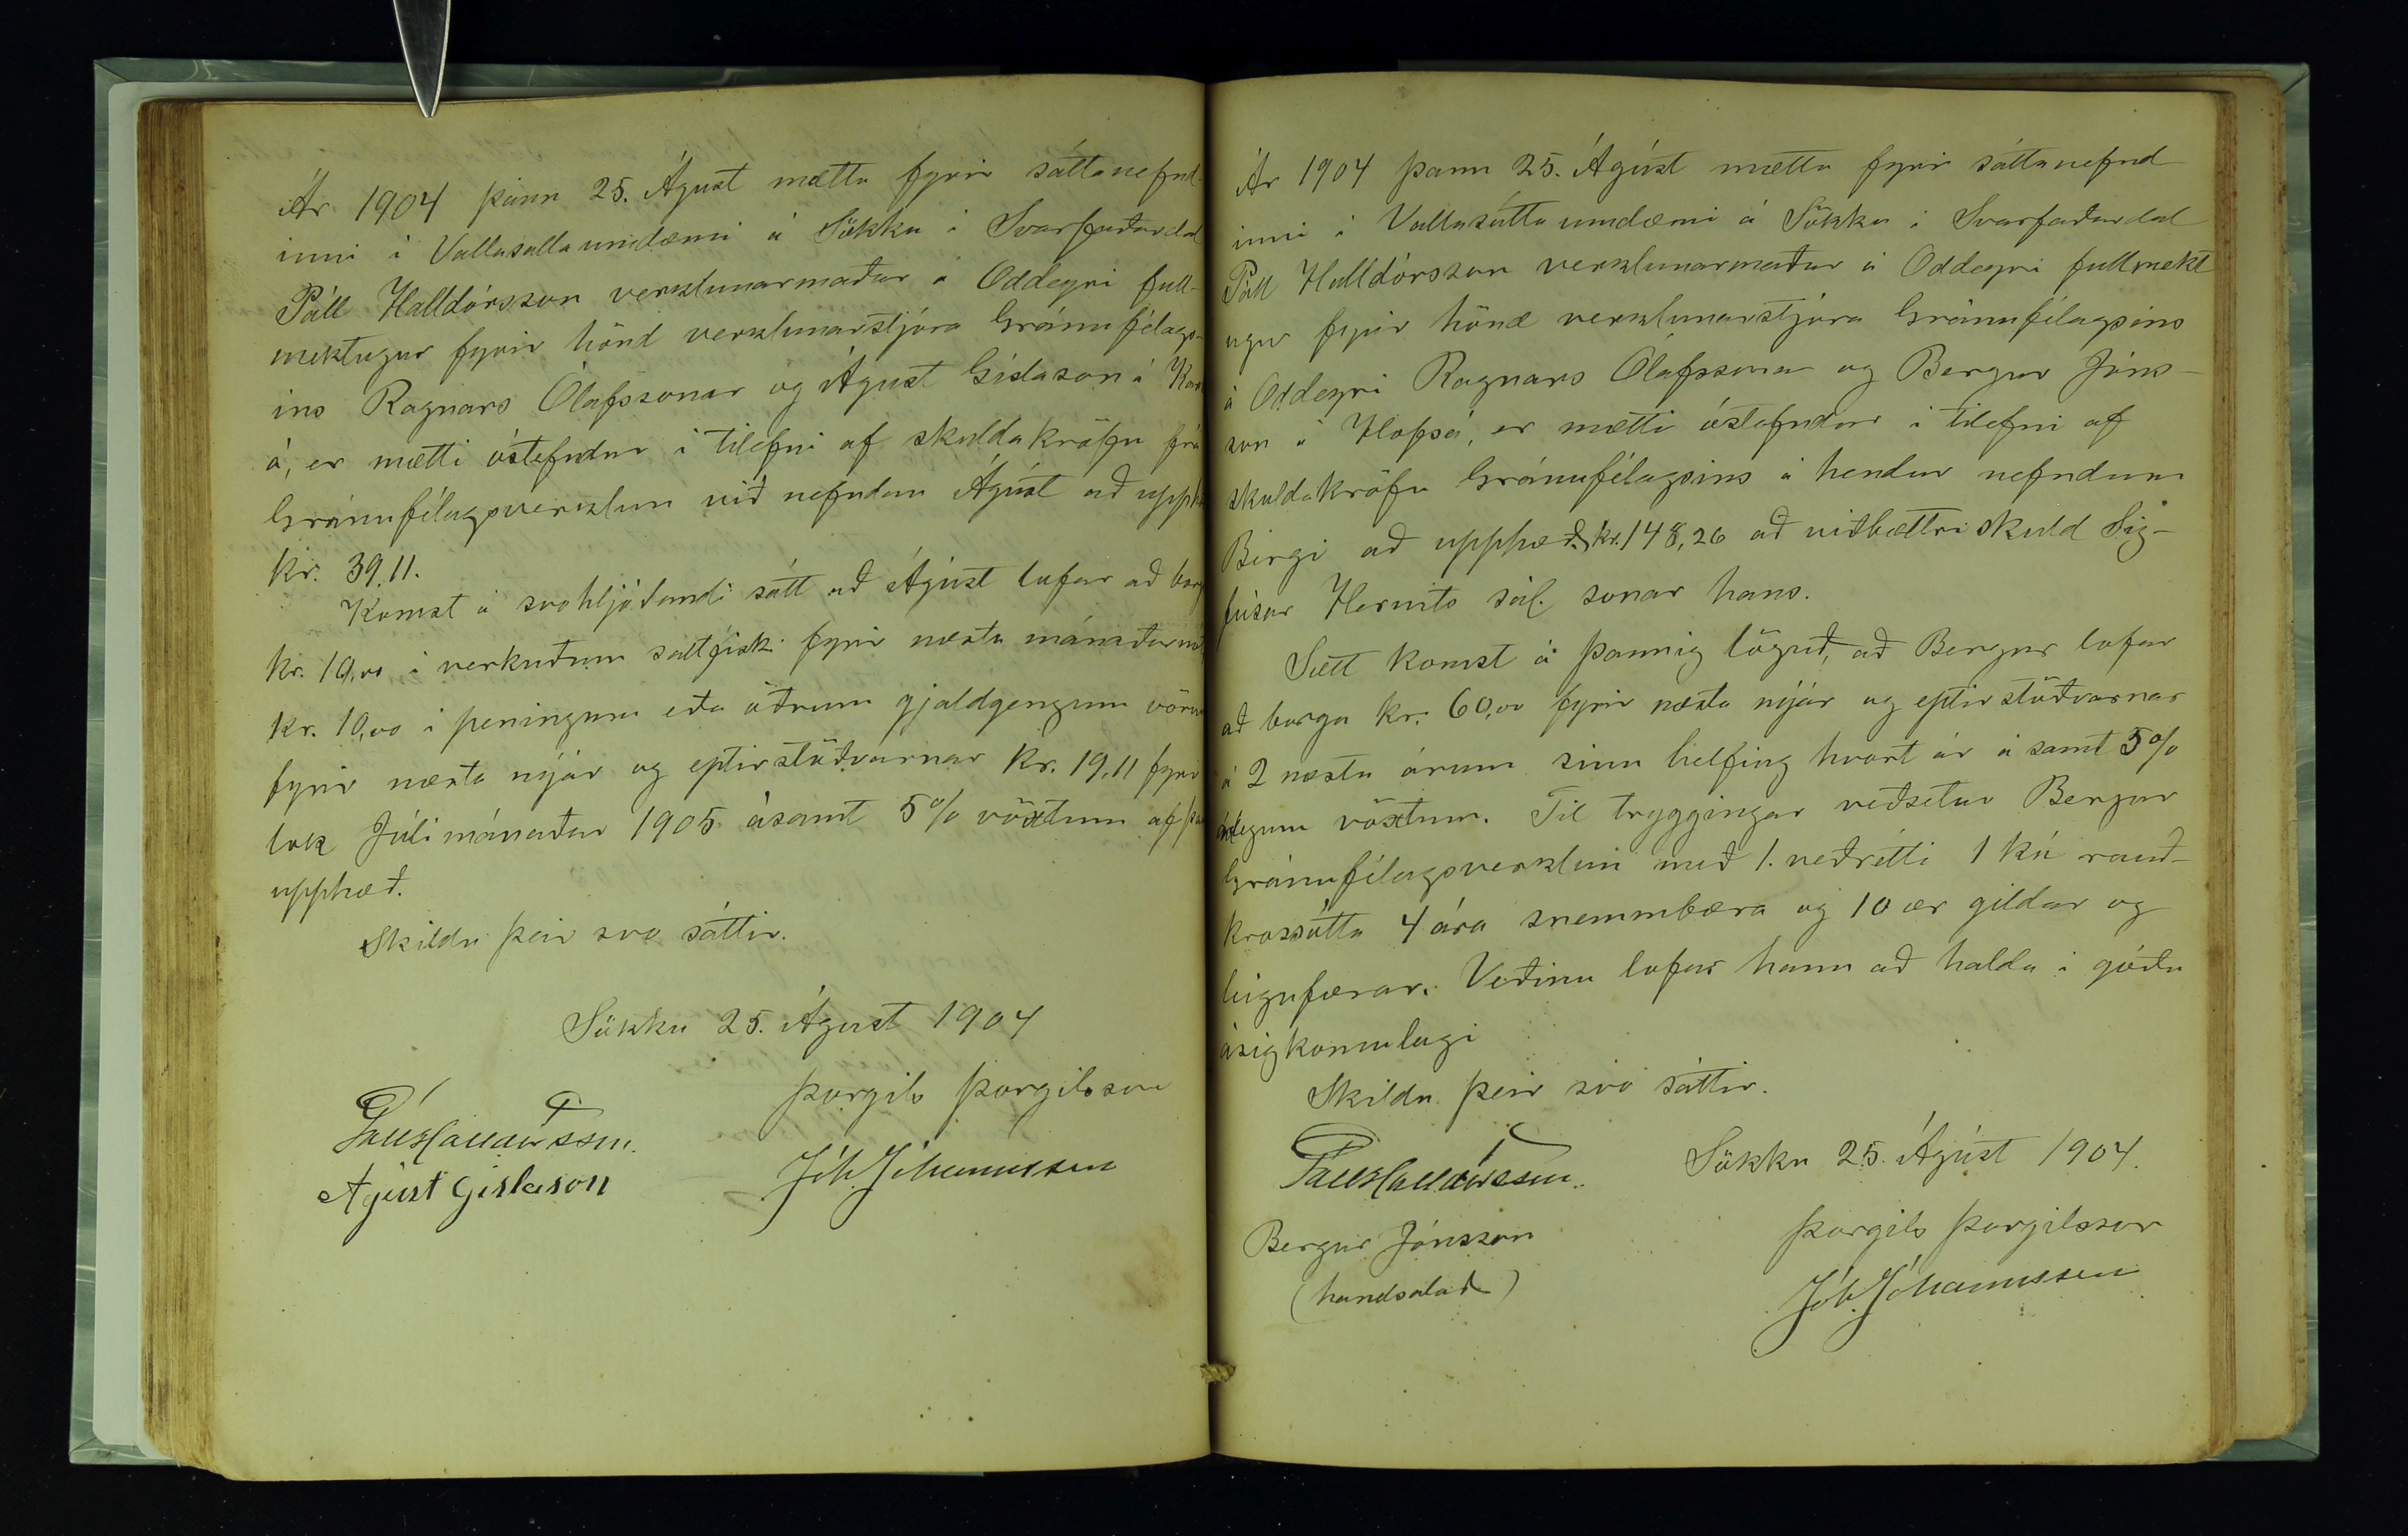 Ár 1904 þann 25. Ágúst mættu fyrir sáttanefnd-
inni í Vallasáttaumdæmi á Sökku í Svarfaðardal
Páll Halldórsson verzlunarmaður á Oddeyri full-
mektugur fyrir hönd verzlunarstjóra Gránufélags-
ins Ragnars Ólafssonar og Ágúst Gíslason á
á, er mætti óstefndur í tilefni af skuldakröfu frá
Gránufélagsverzlun við nefndan Ágúst að upph
kr. 39.11.
Komst á svohljóðandi sátt að Ágúst lofar að borg
kr. 10,00 í verkuðum saltfiski fyrir næstu mánaðarmót
kr. 10,00 í peningum eða öðrum gjaldgengum vörum
fyrir næsta nýár og eptirstöðvarnar kr. 19.11 fyrir
lok Júlímánaðar 1905 ásamt 5% vöxtum af
upphæð.
Skildu þeir svo sáttir.
Sökku 25. Ágúst 1904
Þorgils Þorgilsson
Páll Halldórsson.
Jóh. Jóhannsson
Ágúst Gíslason
Ár 1904 þann 25. Ágúst mættu fyrir sáttanefnd
inni í Vallasáttaumdæmi á Sökku í Svarfaðardal
Páll Halldórsson verzlunarmaður á Oddeyri fullmekt
ugur fyrir hönd verzlunarstjóra Gránufélagsins
á Oddeyri Ragnars Ólafssonar og Bergur Jóns-
son á Hofsá, er mætti óstefndur í tilefni af
skuldakröfu Gránufélagsins á hendur nefndum
Bergi að upphæð kr. 148,26 að viðbættri skuld Sig-
fúsar Hernits sál. sonar hans.
Sátt komst á þannig löguð, að Bergur lofar
að borga kr. 60,00 fyrir næsta nýár og eptirstöðvarnar
á 2 næstu árum sinn helfing hvort ár ásamt 5%
árlegum vöxtum. Til tryggingar veðsetur Bergur
Gránufélagsverzlun með 1. veðrétti 1 kú rauð-
krossótta 4 ára snemmbæra og 10 ær gildar og
leigufærar. Veðinu lofar hann að halda í góðu
ásigkomulagi
Skildu þeir svo sáttir.
Sökku 25. Ágúst 1904.
Páll Halldórsson.
Þorgils Þorgilsson
Bergur Jónsson
(handsalað)
Jóh. Jóhannsson